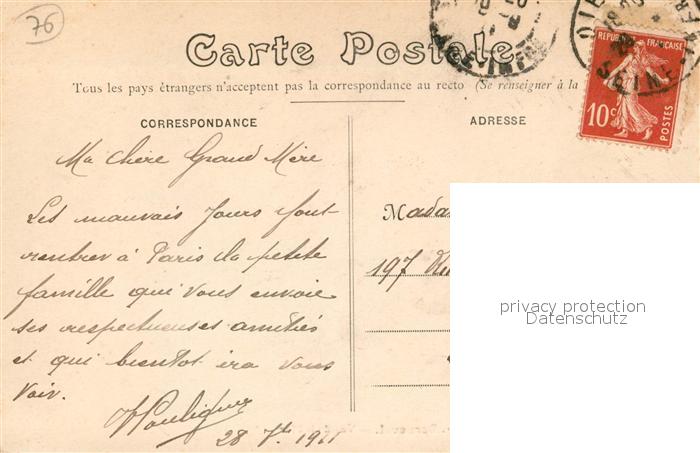 76
Carte Postale
Tous les pays étrangers n'acceptent pas la correspondance au recto (Se renseigner à la
CORRESPONDANCE
Ma chère Grand Mère
Les mauvais jours font
rentrer à Paris la petite
famille qui vous envoie
ses respectueuses amitiés
et qui bientot ira vous
voir.
28 7bre 1911
ADRESSE
REPUBLIQUE FRANÇAISE
10c
POSTES
Mada
197
privacy protection
Datenschutz